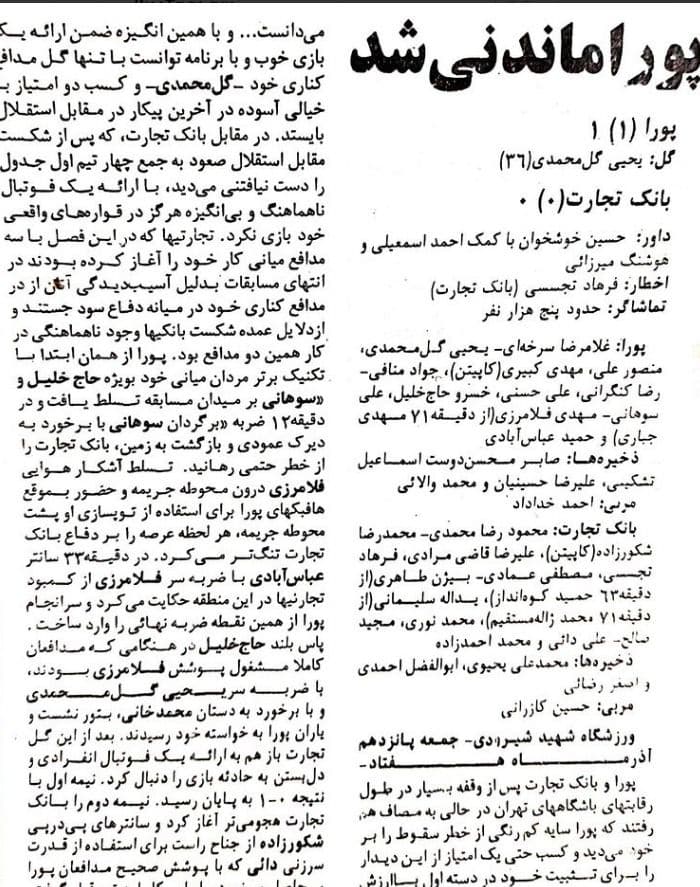 پورا ماندنی شد
پورا (۱) ۱
گل: یحیی گل‌محمدی(۳۶)
بانک تجارت(۰) ۰
داور: حسین خوشخوان با کمک احمد اسمعیلی و
هوشنگ میرزائی
اخطار: فرهاد تجسسی (بانک تجارت)
تماشاگر: حدود پنج هزار نفر
پورا: غلامرضا سرخه‌ای- یحیی گل‌محمدی،
منصور علی، مهدی کبیری(کاپیتن)، جواد منافی-
رضا کنگرانی، علی حسنی، خسرو حاج‌خلیل، علی
سوهانی- مهدی فلامرزی(از دقیقه۷۱ مهدی
جباری) و حمید عباس‌آبادی
ذخیره‌ها: صابر محسن‌دوست اسماعیل
تشکینی، علیرضا حسینیان و محمد والائی
مربی: احمد خداداد
بانک تجارت: محمود رضا محمدی- محمدرضا
شکورزاده(کاپیتن)، علیرضا قاضی مرادی، فرهاد
تجسسی، مصطفی عمادی- بیژن طاهری(از
دقیقه۶۳ حمید کوه‌انداز)، یداله سلیمانی(از
دقیقه۷۱ محمد ژاله‌مستقیم)، محمد نوری، مجید
صالح- علی دائی و محمد احمدزاده
ذخیره‌ها: محمدعلی یحیوی، ابوالفضل احمدی
و اصغر رضائی
مربی: حسین کازرانی
ورزشگاه شهید شیرودی- جمعه پانزدهم
آذرماه هفتاد-
پورا و بانک تجارت پس از وقفه بسیار در طول
رقابتهای باشگاههای تهران در حالی به مصاف هم
رفتند که پورا سایه کم رنگی از خطر سقوط را بر
خود می‌دید و کسب حتی یک امتیاز از این دیدار
را برای تثبیت خود در دسته اول باارزش
می‌دانست... و با همین انگیزه ضمن ارائه یک
بازی خوب و با برنامه توانست با تنها گل مدافع
کناری خود -گل‌محمدی- و کسب دو امتیاز با
خیالی آسوده در آخرین پیکار در مقابل استقلال
بایستد. در مقابل بانک تجارت، که پس از شکست
مقابل استقلال صعود به جمع چهار تیم اول جدول
را دست نیافتنی می‌دید، با ارائه یک فوتبال
ناهماهنگ و بی‌انگیزه هرگز در قواره‌های واقعی
خود بازی نکرد. تجارتیها که در این فصل با سه
مدافع میانی کار خود را آغاز کرده بودند در
انتهای مسابقات بدلیل آسیب‌دیدگی آنان از در
مدافع کناری خود در میانه دفاع سود جستند و
ازدلایل عمده شکست بانکیها وجود ناهماهنگی در
کار همین دو مدافع بود. پورا از همان ابتدا با
تکنیک برتر مردان میانی خود بویژه حاج خلیل و
«سوهانی بر میدان مسابقه تسلط یافت و در
دقیقه۱۲ ضربه «برگردان سوهانی با برخورد به
دیرک عمودی و بازگشت به زمین، بانک تجارت را
از خطر حتمی رهانید. تسلط آشکار هوایی
فلامرزی درون محوطه جریمه و حضور بموقع
هافبکهای پورا برای استفاده از توپسازی او پشت
محوطه جریمه، هر لحظه عرصه را بر دفاع بانک
تجارت تنگ‌تر می‌کرد. در دقیقه۳۳ سانتر
عباس‌آبادی با ضربه سر فلامرزی از کمبود
تجارتیها در این منطقه حکایت می‌کرد و سرانجام
پورا از همین نقطه ضربه نهائی را وارد ساخت.
پاس بلند حاج‌خلیل در هنگامی که مدافعان
کاملا مشغول پوشش فلامرزی بودند،
با ضربه سر یحیی گل‌محمدی
و با برخورد به دستان محمدخانی، بتور نشست و
یاران پورا به خواسته خود رسیدند. بعد از این گل
تجارت باز هم به ارائه یک فوتبال انفرادی و
دل‌بستن به حادثه بازی را دنبال کرد. نیمه اول با
نتیجه ۰-۱ به پایان رسید. نیمه دوم را بانک
تجارت هجومی‌تر آغاز کرد و سانترهای پی‌درپی
شکورزاده از جناح راست برای استفاده از قدرت
سرزنی دائی که با پوشش صحیح مدافعان پورا